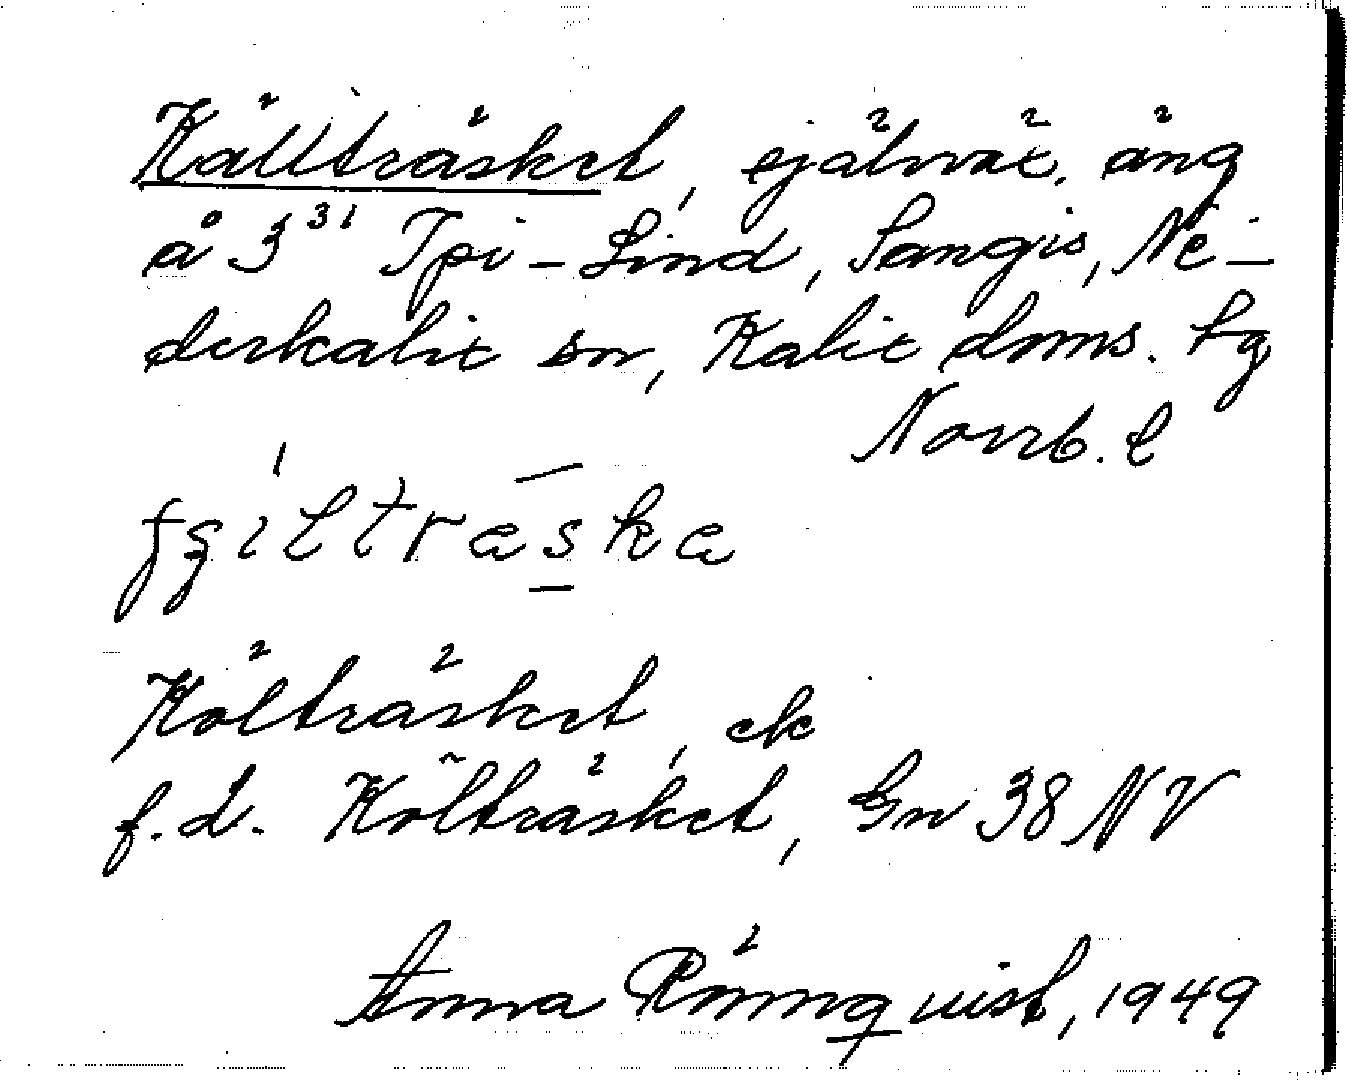 Källträsket, själväx. äng
å 3³¹ Ipi-Lind, Sangis, Ne-
derkalix sn, Kalix doms. tg
Norrb. l
Költräsket, ek
f.d. Költräsket, Gn 38 NV
Anna Rönnqvist, 1949